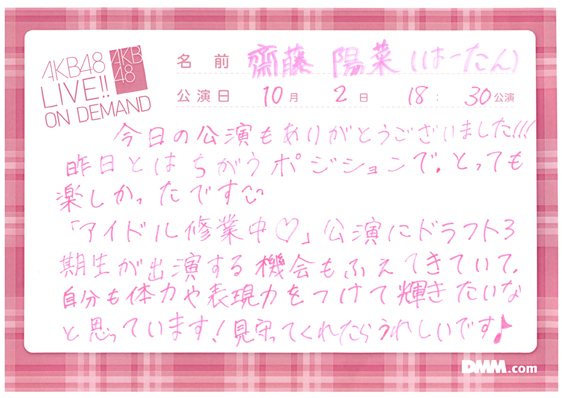 AKB48
LIVE!!
ON DEMAND
AKB
48
名前 齋藤 陽菜(はーたん)
公演日 10月 2日 18:30公演
今日の公演もありがとうございました!!!
昨日とはちがうポジションで、とっても
楽しかったです
「アイドル修業中♡」公演にドラフト3
期生が出演する機会もふえてきていて、
自分も体力や表現力をつけて輝きたいな
と思っています!見守ってくれたらうれしいです♪
DMM.com